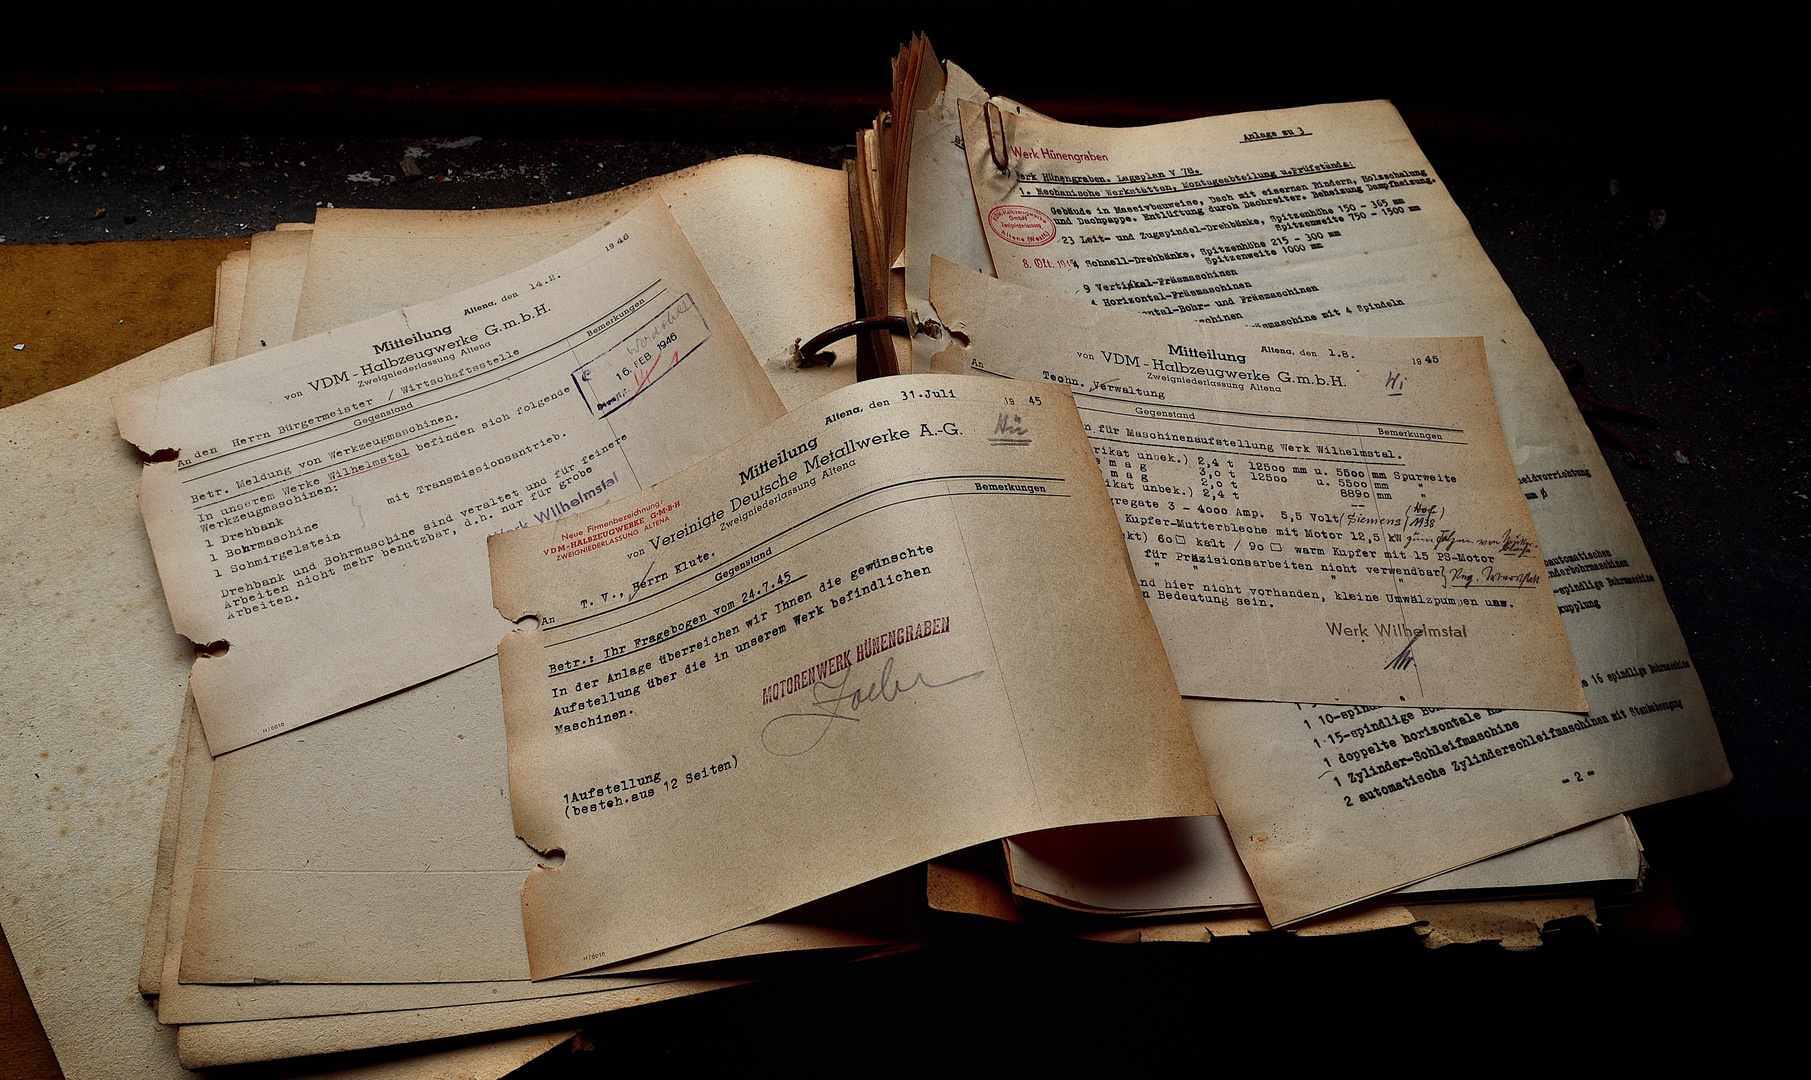 14.2.
1946
Altena, den
Mitteilung
von VDM-Halbzeugwerke G.m.b.H.
Zweigniederlassung Altena
An den Herrn Bürgermeister / Wirtschaftsstelle
Gegenstand
Bemerkungen
16. FEB. 1946
Betr. Meldung von Werkzeugmaschinen.
In unserem Werke Wilhelmstal befinden sich folgende
Werkzeugmaschinen:
1 Drehbank mit Transmissionsantrieb.
1 Bohrmaschine
1 Schmirgelstein
Drehbank und Bohrmaschine sind veraltet und für feinere
Arbeiten nicht mehr benutzbar, d.h. nur für grobe
Arbeiten.
Werk Wilhelmstal
H/0010
Altena, den 31.Juli 1945
Hü
Mitteilung
von Vereinigte Deutsche Metallwerke A.-G.
Zweigniederlassung Altena
Neue Firmenbezeichnung!
VDM-HALBZEUGWERKE G·M·B·H
ZWEIGNIEDERLASSUNG ALTENA
An T. V., Herrn Klute.
Gegenstand
Bemerkungen
Betr.: Ihr Fragebogen vom 24.7.45
In der Anlage überreichen wir Ihnen die gewünschte
Aufstellung über die in unserem Werk befindlichen
Maschinen.
MOTORENWERK HÜNENGRABEN
1Aufstellung
(besteh.aus 12 Seiten)
H/0010
Anlage zu 3
Werk Hünengraben
Werk Hünengraben. Lageplan V 78.
1. Mechanische Werkstätten, Montageabteilung u.Prüfstände:
Gebäude in Massivbauweise, Dach mit eisernen Bindern, Holzschalung
und Dachpappe. Entlüftung durch Dachreiter. Beheizung Dampfheizung.
VDM-Halbzeugwerke
GmbH
Zweigniederlassung
Altena (Westf.)
23 Leit- und Zugspindel-Drehbänke, Spitzenhöhe 150 - 365 mm
Spitzenweite 750 - 1500 mm
8. Okt. 1945
4 Schnell-Drehbänke, Spitzenhöhe 215 - 300 mm
Spitzenweite 1000 mm
9 Vertikal-Fräsmaschinen
4 Horizontal-Fräsmaschinen
ontal-Bohr- und Fräsmaschinen
schinen
äsmaschine mit 4 Spindeln
Mitteilung
Altena, den 1.8. 1945
von VDM-Halbzeugwerke G.m.b.H.
Zweigniederlassung Altena
Wi
An Techn. Verwaltung
Gegenstand
Bemerkungen
n für Maschinenaufstellung Werk Wilhelmstal.
rikat unbek.) 2,4 t 12500 mm u. 5500 mm Spurweite
e m a g 3,0 t 12500 u. 5500 mm "
m a g 2,0 t 8890 mm "
ikat unbek.) 2,4 t --
regate 3 - 4000 Amp. 5,5 Volt (Siemens
Kupfer-Mutterbleche mit Motor 12,5 kW
kt) 60□ kalt / 90□ warm Kupfer mit 15 PS-Motor
für Präzisionsarbeiten nicht verwendbar
" " " "
nd hier nicht vorhanden, kleine Umwälzpumpen usw.
n Bedeutung sein.
Werk Wilhelmstal
eidvorrichtung
mm ø
automatischen
nderbohrmaschinen
-spindlige Bohrmaschine
kupplung
e 16 spindlige Bohrmaschine
1 10-spind
1 15-spindlige Bo
1 doppelte horizontale
1 Zylinder-Schleifmaschine
2 automatische Zylinderschleifmaschinen mit Staubabsaugung
- 2 -